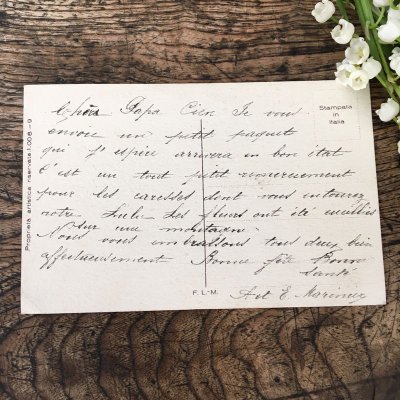 Chers Papa Cien Je vous
envoie un petit paquet
qui j'espère arrivera en bon état
C'est un tout petit remerciement
pour les caresses dont vous entourez
notre Lulu. Les fleurs ont été cueillies
sur une montagne.
Nous vous embrassons tous deux bien
affectueusement Bonne fête Bonne
santé
A et E. Marineux
Stampata
in
Italia
Proprietà artistica riservata 1-008-9
F. L.-M.